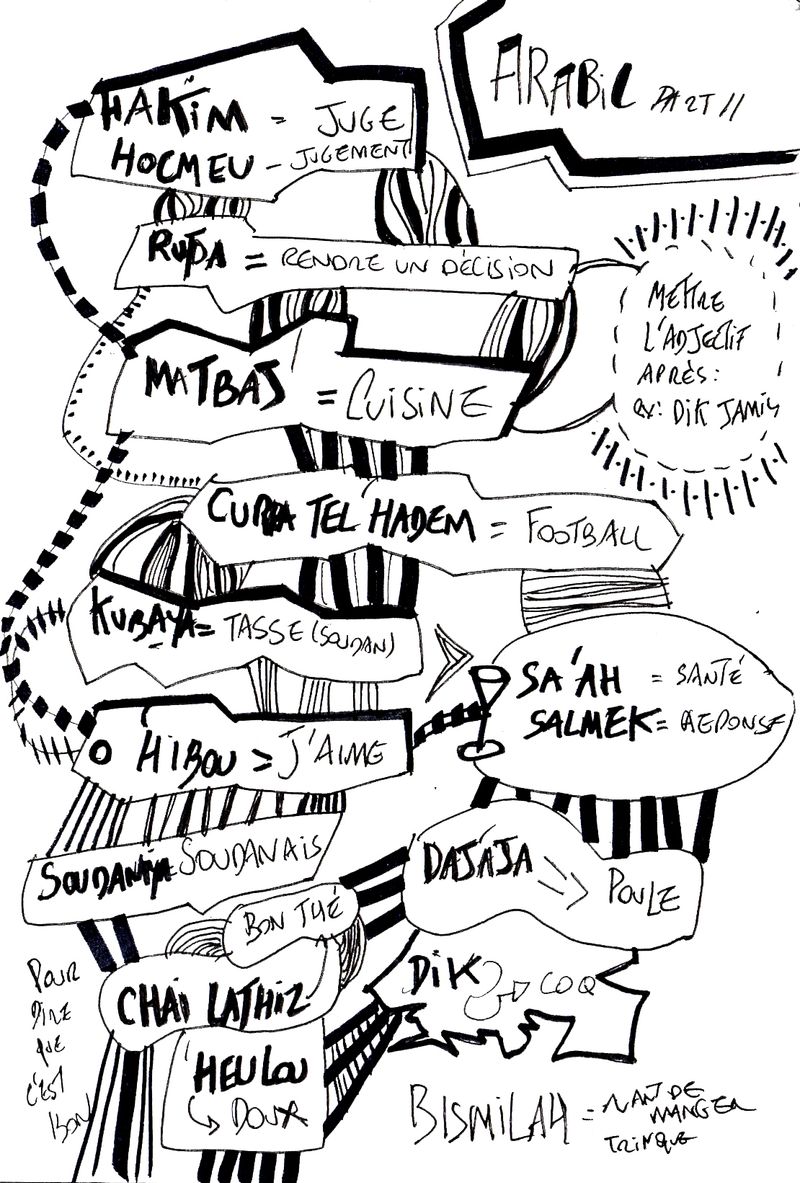 ARABIC PART II
HAKIM = JUGE
HOCMEU - JUGEMENT
= RENDRE UN DÉCISION
METTRE
L'ADJECTIF
APRÈS:
ex: DIK JAMIL
MATBAJ = CUISINE
TEL HADEM = FOOTBALL
KUBAYA = TASSE (SOUDAN)
SA'AH = SANTÉ
SALMEK = RÉPONSE
O HIBOU = J'AIME
SOUDANIYA = SOUDANAIS
DAJAJA
POULE
BON THÉ
DIK COQ
CHAI LATHIZ
POUR
DIRE
QUE
C'EST
BON
HEULOU
DOUX
BISMILAH = AVANT DE
MANGER
TRINQUE